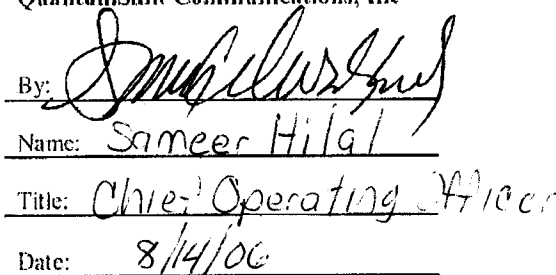 Communications, Inc
By:
Name: Sameer Hilal
Title: Chief Operating Officer
Date: 8/14/06